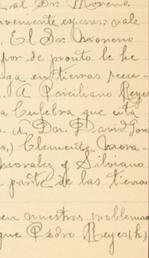 al Dr Moreno
conveniente esperar; vale
. El Dr Moreno
por de pronto le he
en tierras
. A Porciliano Reyes
la Culebra que esta
a Don
, Clemente Mora-
Morales y Silviano
parte de las tierras
en nuestros problemas
que Pedro Reyes (h)